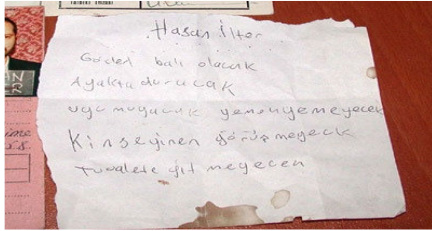 Hasan İlter
Gözleri balı olacak
Ayakta durucak
uyu muyacak yemenyemeyecek
Kimseyinen görüşmeyecek
Tuvalete git meyecen